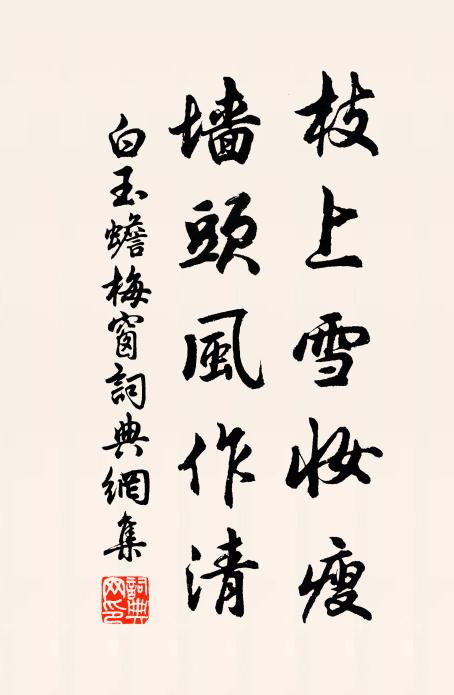 枝上雪妝瘦
墻頭風作清
白玉蟾梅窗詞典網集
詞典网印